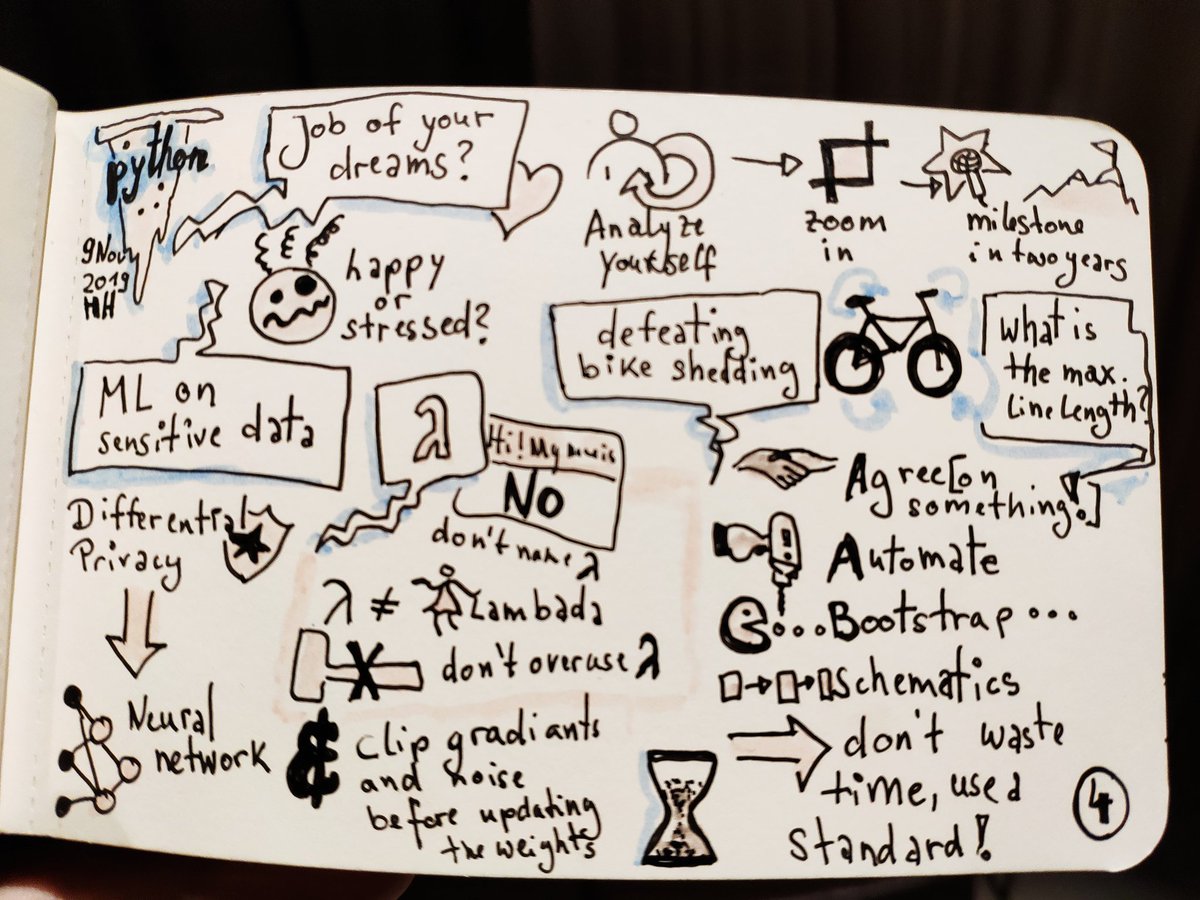 python
9 Nov
2019
MH
Job of your
dreams?
happy
or
stressed?
Analyze
yourself
zoom
in
milestone
in two years
ML on
sensitive data
Differential
Privacy
Neural
network
λ
Hi! My
No
don't name λ
λ ≠ Lambada
don't overuse λ
& clip gradiants
and noise
before updating
the weights
defeating
bike shedding
what is
the max.
line length?
Agree[on
something!]
Automate
...Bootstrap...
Schematics
don't waste
time, use a
standard!
4